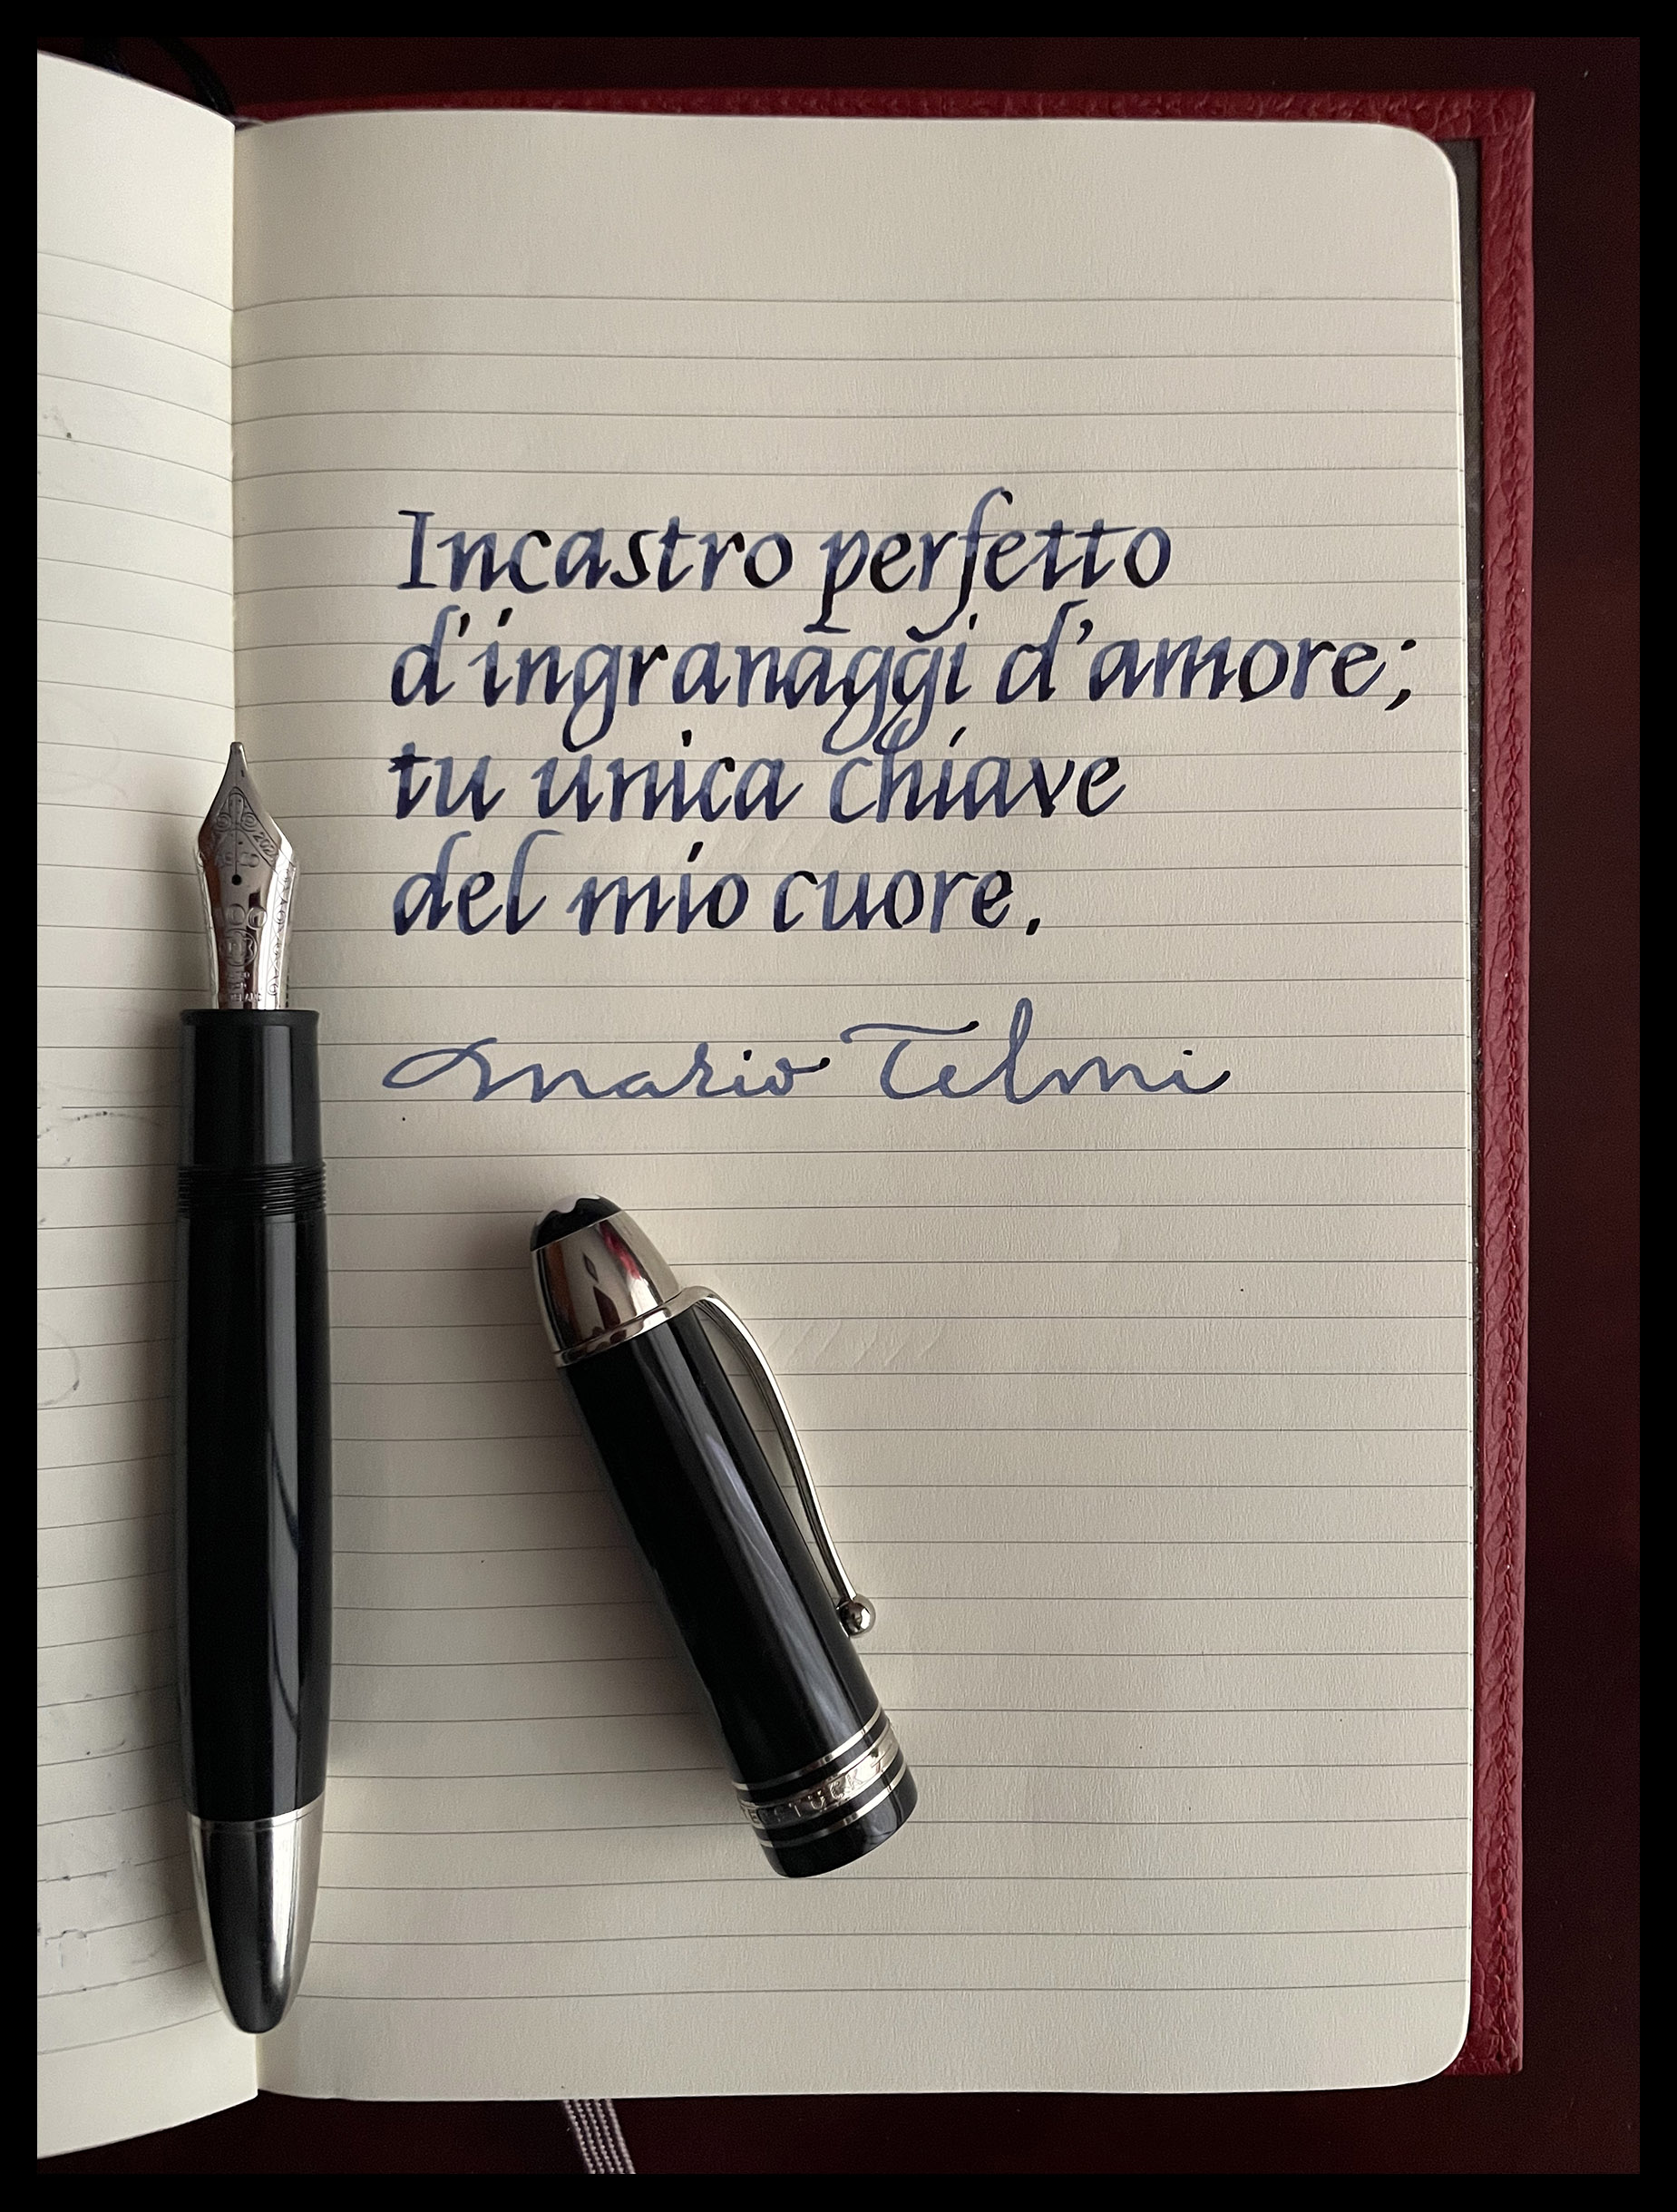 Incastro perfetto
d'ingranaggi d'amore;
tu unica chiave
del mio cuore.
Mario Telmi